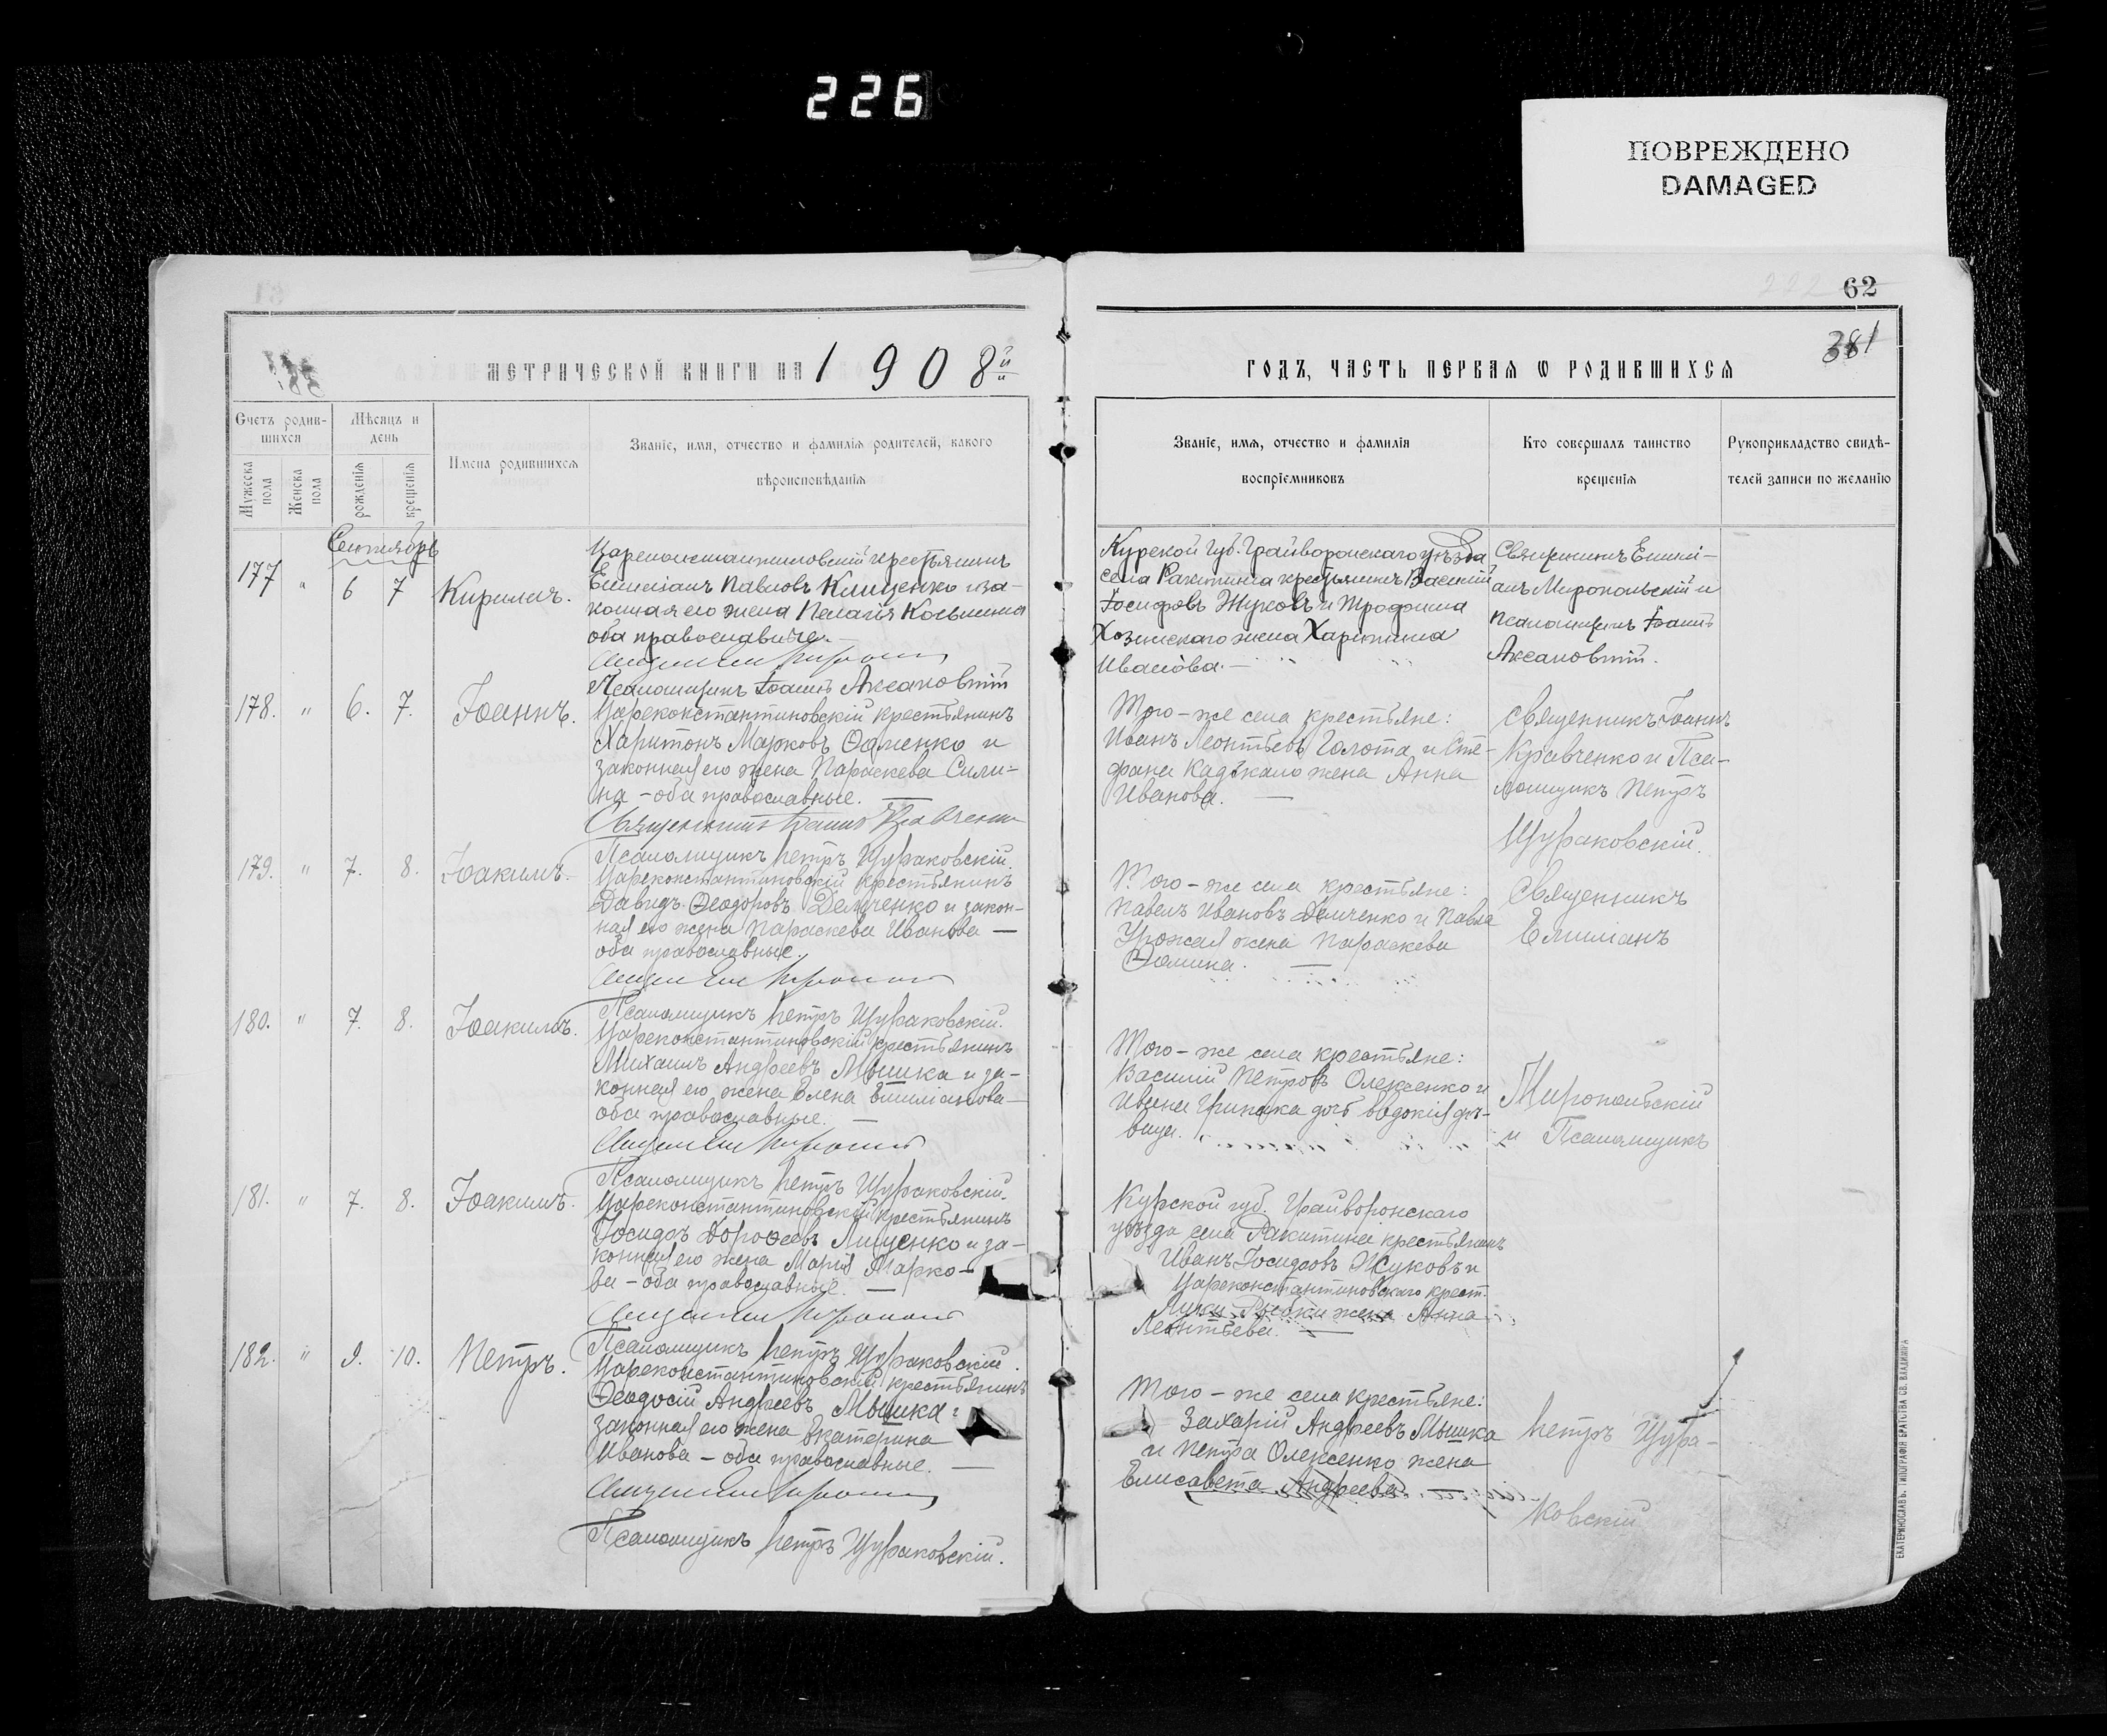 226
ПОВРЕЖДЕНО
DAMAGED
62
381
МЕТРИЧЕСКОЙ КНИГИ НА 1908й
ГОДЪ, ЧАСТЬ ПЕРВАЯ Ѡ РОДИВШИХСЯ
Счетъ родив-
шихся
Мужеска пола
Женска пола
Мѣсяцъ и
день
рожденія
крещенія
Имена родившихся
Званіе, имя, отчество и фамилія родителей, какого
вѣроисповѣданія
Званіе, имя, отчество и фамилія
воспріемниковъ
Кто совершалъ таинство
крещенія
Рукоприкладство свидѣ-
телей записи по желанію
Сентябрь
177 " 6 7 Кириллъ.
Цареконстантиновскій крестьянинъ
Емиліанъ Павловъ Клищенко и за-
конная его жена Пелагія Косьмина
оба православные.
Псаломщикъ Іоаннъ Аксановскій
Курской губ. Грайворонскаго уѣзда
села Ракитина крестьянинъ Василій
Іосифовъ Жуковъ и Трофима
жена Харитина
Иванова. —
Священникъ Емилі-
анъ Миропольскій и
Псаломщикъ Іоаннъ
Аксановскій.
178. " 6. 7. Іоаннъ.
Цареконстантиновскій крестьянинъ
Харитонъ Марковъ и
законная его жена Параскева Сили-
на - оба православные. —
Священникъ Іоаннъ Кравченко
Псаломщикъ Петръ Щураковскій.
Того-же села крестьяне:
Иванъ Леонтьевъ Голота и Сте-
фана жена Анна
Иванова. —
Священникъ Іоаннъ
Кравченко и Пса-
ломщикъ Петръ
Щураковскій.
179. " 7. 8. Іоакимъ.
Цареконстантиновскій крестьянинъ
Давидъ Ѳеодоровъ Демченко и закон-
ная его жена Параскева Иванова —
оба православные.
Псаломщикъ Петръ Щураковскій.
Того-же села крестьяне:
Павелъ Ивановъ Демченко и Павла
Урожая жена Параскева
Ѳомина. —
Священникъ
Емиліанъ
180. " 7. 8. Іоакимъ.
Цареконстантиновскій крестьянинъ
Михаилъ Андреевъ Мышка и за-
конная его жена Елена Емиліанова —
оба православные. —
Псаломщикъ Петръ Щураковскій.
Того-же села крестьяне:
Василій Петровъ Олексенко и
Ивана дочь Евдокія дѣ-
вица.
Миропольскій
и Псаломщикъ
181. " 7. 8. Іоакимъ.
Цареконстантиновскій крестьянинъ
Іосифъ Дороѳеевъ Лищенко и за-
конная его жена Марія Марко-
ва - оба православные. —
Псаломщикъ Петръ Щураковскій.
Курской губ. Грайворонскаго
уѣзда села Ракитина крестьянинъ
Иванъ Іосифовъ Жуковъ и
Цареконстантиновскаго крест.
Луки Рыбки жена Анна
Леонтьева. —
182. " 9. 10. Петръ.
Цареконстантиновскій крестьянинъ
Ѳеодосій Андреевъ Мышка и
законная его жена Екатерина
Иванова - оба православные. —
Псаломщикъ Петръ Щураковскій.
Того-же села крестьяне:
Захарій Андреевъ Мышка
и Петра Олексенко жена
Елисавета Андреева
Петръ Щура-
ковскій
ЕКАТЕРИНОСЛАВЪ. ТИПОГРАФІЯ БРАТСТВА СВ. ВЛАДИМІРА